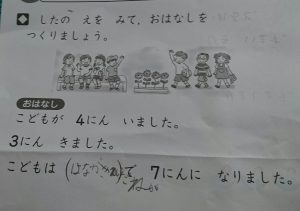 したの えを みて、おはなしを
つくりましょう。
おはなし
こどもが 4にん いました。
3にん きました。
こどもは( )で 7にんに なりました。